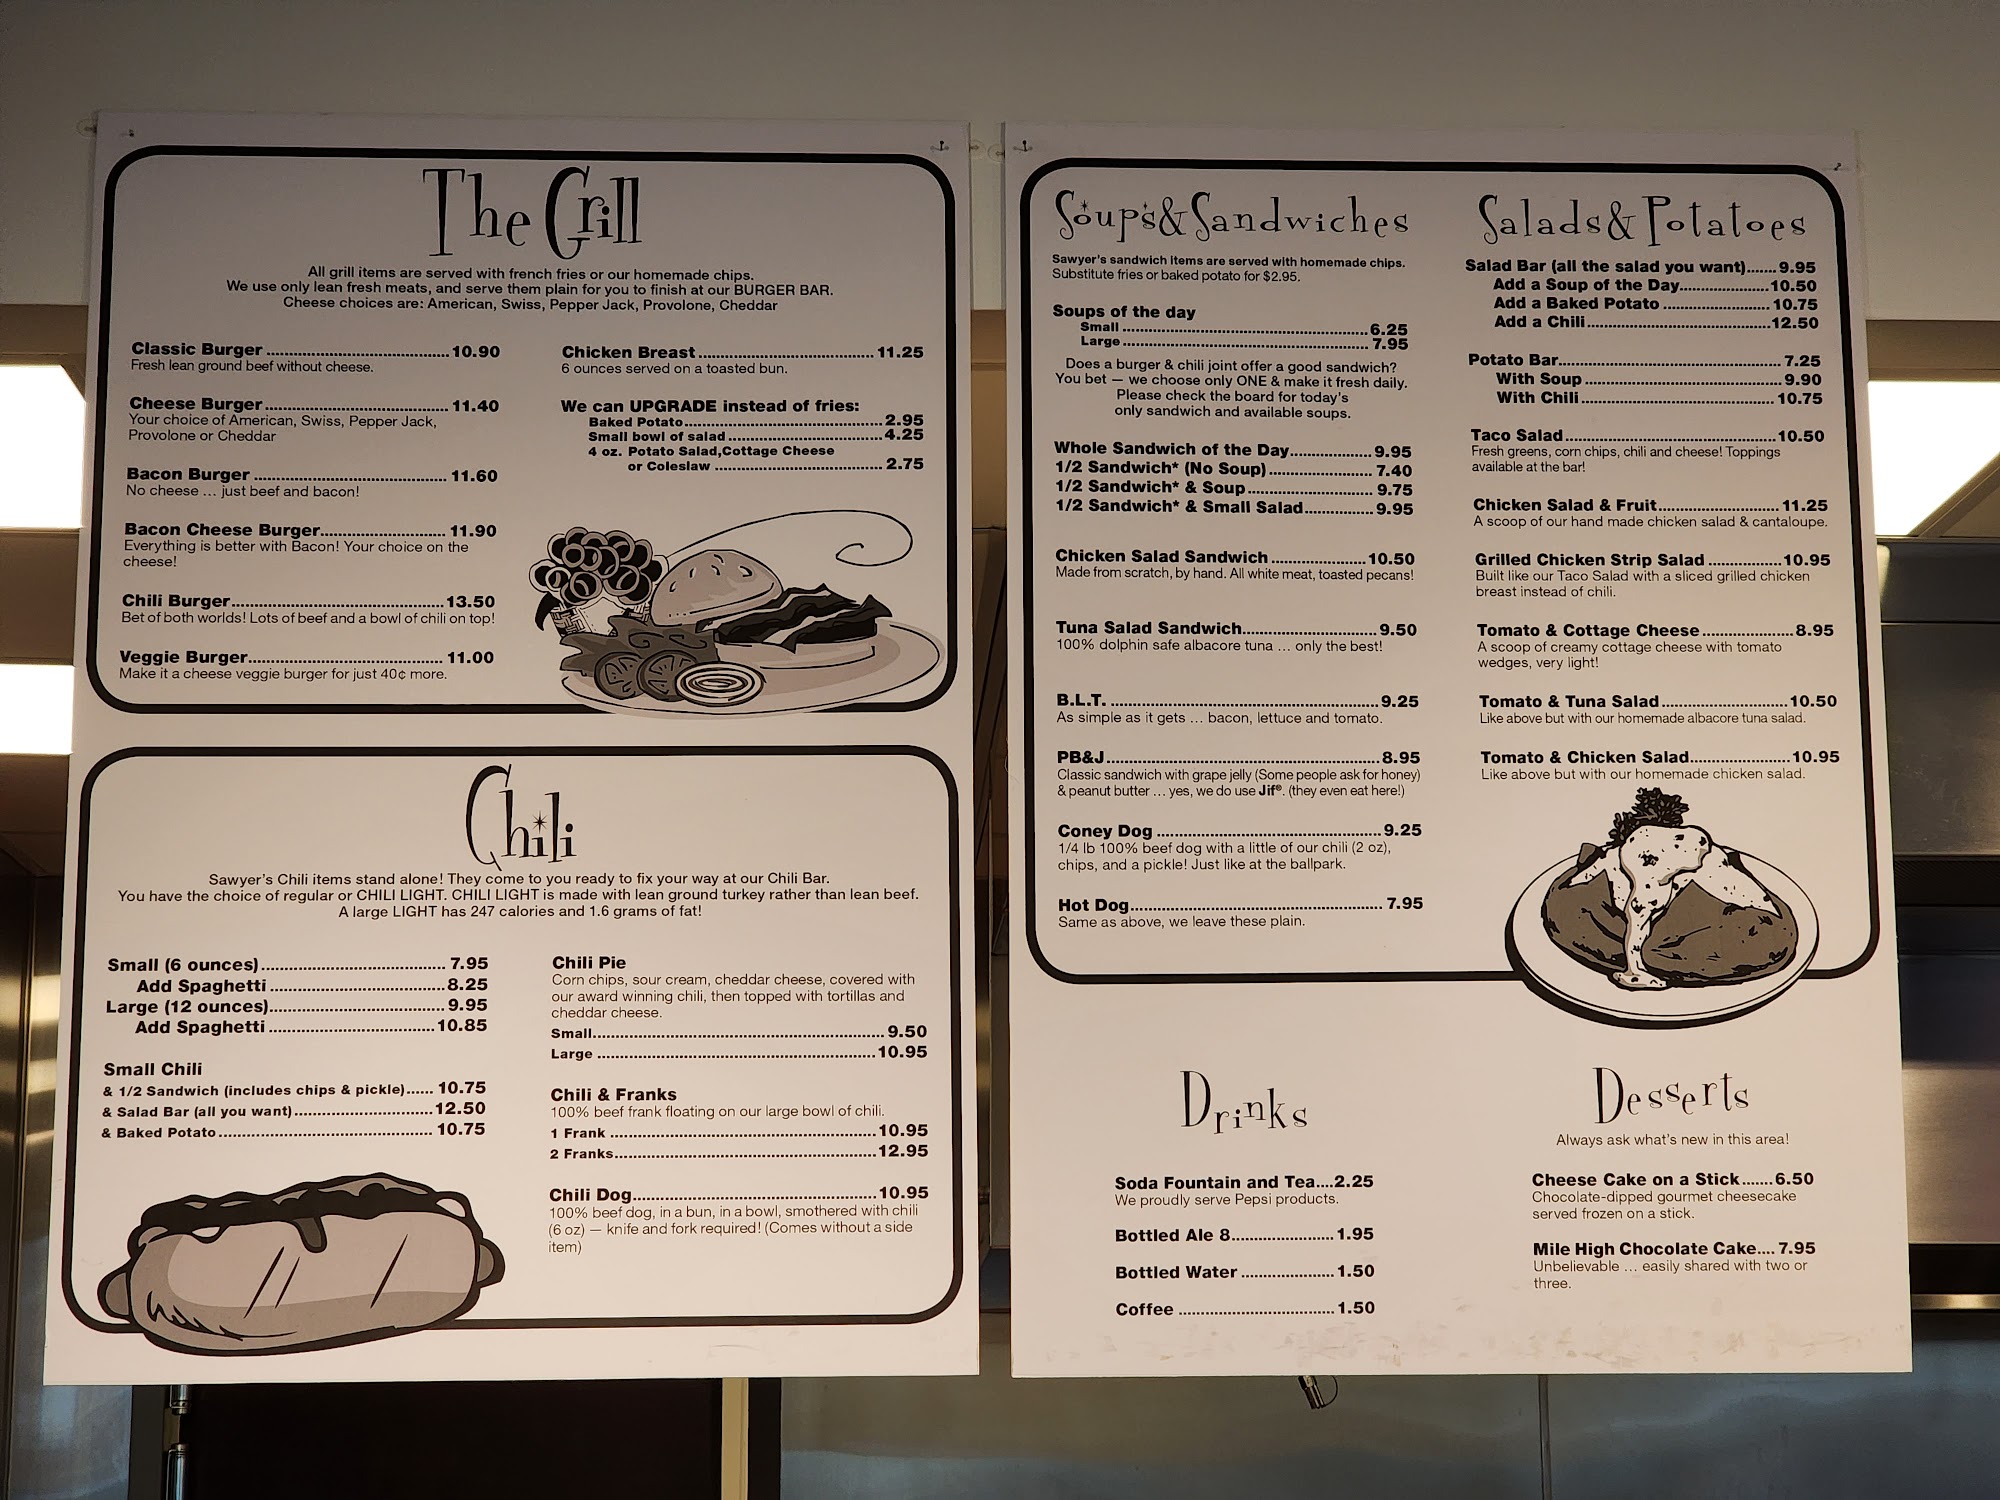 The Grill
All grill items are served with french fries or our homemade chips.
We use only lean fresh meats, and serve them plain for you to finish at our BURGER BAR.
Cheese choices are: American, Swiss, Pepper Jack, Provolone, Cheddar
Classic Burger ........ 10.90
Fresh lean ground beef without cheese.
Cheese Burger ........ 11.40
Your choice of American, Swiss, Pepper Jack,
Provolone or Cheddar
Bacon Burger ........ 11.60
No cheese ... just beef and bacon!
Bacon Cheese Burger........ 11.90
Everything is better with Bacon! Your choice on the
cheese!
Chili Burger........ 13.50
Bet of both worlds! Lots of beef and a bowl of chili on top!
Veggie Burger........ 11.00
Make it a cheese veggie burger for just 40¢ more.
Chicken Breast ........ 11.25
6 ounces served on a toasted bun.
We can UPGRADE instead of fries:
Baked Potato........ 2.95
Small bowl of salad ........ 4.25
4 oz. Potato Salad,Cottage Cheese
or Coleslaw ........ 2.75
Chili
Sawyer's Chili items stand alone! They come to you ready to fix your way at our Chili Bar.
You have the choice of regular or CHILI LIGHT. CHILI LIGHT is made with lean ground turkey rather than lean beef.
A large LIGHT has 247 calories and 1.6 grams of fat!
Small (6 ounces)........ 7.95
Add Spaghetti ........ 8.25
Large (12 ounces)........ 9.95
Add Spaghetti ........ 10.85
Small Chili
& 1/2 Sandwich (includes chips & pickle)...... 10.75
& Salad Bar (all you want)........ 12.50
& Baked Potato ........ 10.75
Chili Pie
Corn chips, sour cream, cheddar cheese, covered with
our award winning chili, then topped with tortillas and
cheddar cheese.
Small........ 9.50
Large ........ 10.95
Chili & Franks
100% beef frank floating on our large bowl of chili.
1 Frank ........ 10.95
2 Franks........ 12.95
Chili Dog........ 10.95
100% beef dog, in a bun, in a bowl, smothered with chili
(6 oz) — knife and fork required! (Comes without a side
item)
Soups & Sandwiches
Sawyer's sandwich items are served with homemade chips.
Substitute fries or baked potato for $2.95.
Soups of the day
Small ........ 6.25
Large ........ 7.95
Does a burger & chili joint offer a good sandwich?
You bet — we choose only ONE & make it fresh daily.
Please check the board for today's
only sandwich and available soups.
Whole Sandwich of the Day........ 9.95
1/2 Sandwich* (No Soup)........ 7.40
1/2 Sandwich* & Soup........ 9.75
1/2 Sandwich* & Small Salad........ 9.95
Chicken Salad Sandwich ........ 10.50
Made from scratch, by hand. All white meat, toasted pecans!
Tuna Salad Sandwich........ 9.50
100% dolphin safe albacore tuna ... only the best!
B.L.T. ........ 9.25
As simple as it gets ... bacon, lettuce and tomato.
PB&J........ 8.95
Classic sandwich with grape jelly (Some people ask for honey)
& peanut butter ... yes, we do use Jif®. (they even eat here!)
Coney Dog ........ 9.25
1/4 lb 100% beef dog with a little of our chili (2 oz),
chips, and a pickle! Just like at the ballpark.
Hot Dog........ 7.95
Same as above, we leave these plain.
Salads & Potatoes
Salad Bar (all the salad you want)....... 9.95
Add a Soup of the Day........ 10.50
Add a Baked Potato ........ 10.75
Add a Chili ........ 12.50
Potato Bar........ 7.25
With Soup ........ 9.90
With Chili ........ 10.75
Taco Salad ........ 10.50
Fresh greens, corn chips, chili and cheese! Toppings
available at the bar!
Chicken Salad & Fruit........ 11.25
A scoop of our hand made chicken salad & cantaloupe.
Grilled Chicken Strip Salad ........ 10.95
Built like our Taco Salad with a sliced grilled chicken
breast instead of chili.
Tomato & Cottage Cheese ........ 8.95
A scoop of creamy cottage cheese with tomato
wedges, very light!
Tomato & Tuna Salad........ 10.50
Like above but with our homemade albacore tuna salad.
Tomato & Chicken Salad........ 10.95
Like above but with our homemade chicken salad.
Drinks
Soda Fountain and Tea....2.25
We proudly serve Pepsi products.
Bottled Ale 8........ 1.95
Bottled Water ........ 1.50
Coffee ........ 1.50
Desserts
Always ask what's new in this area!
Cheese Cake on a Stick.......6.50
Chocolate-dipped gourmet cheesecake
served frozen on a stick.
Mile High Chocolate Cake.... 7.95
Unbelievable ... easily shared with two or
three.